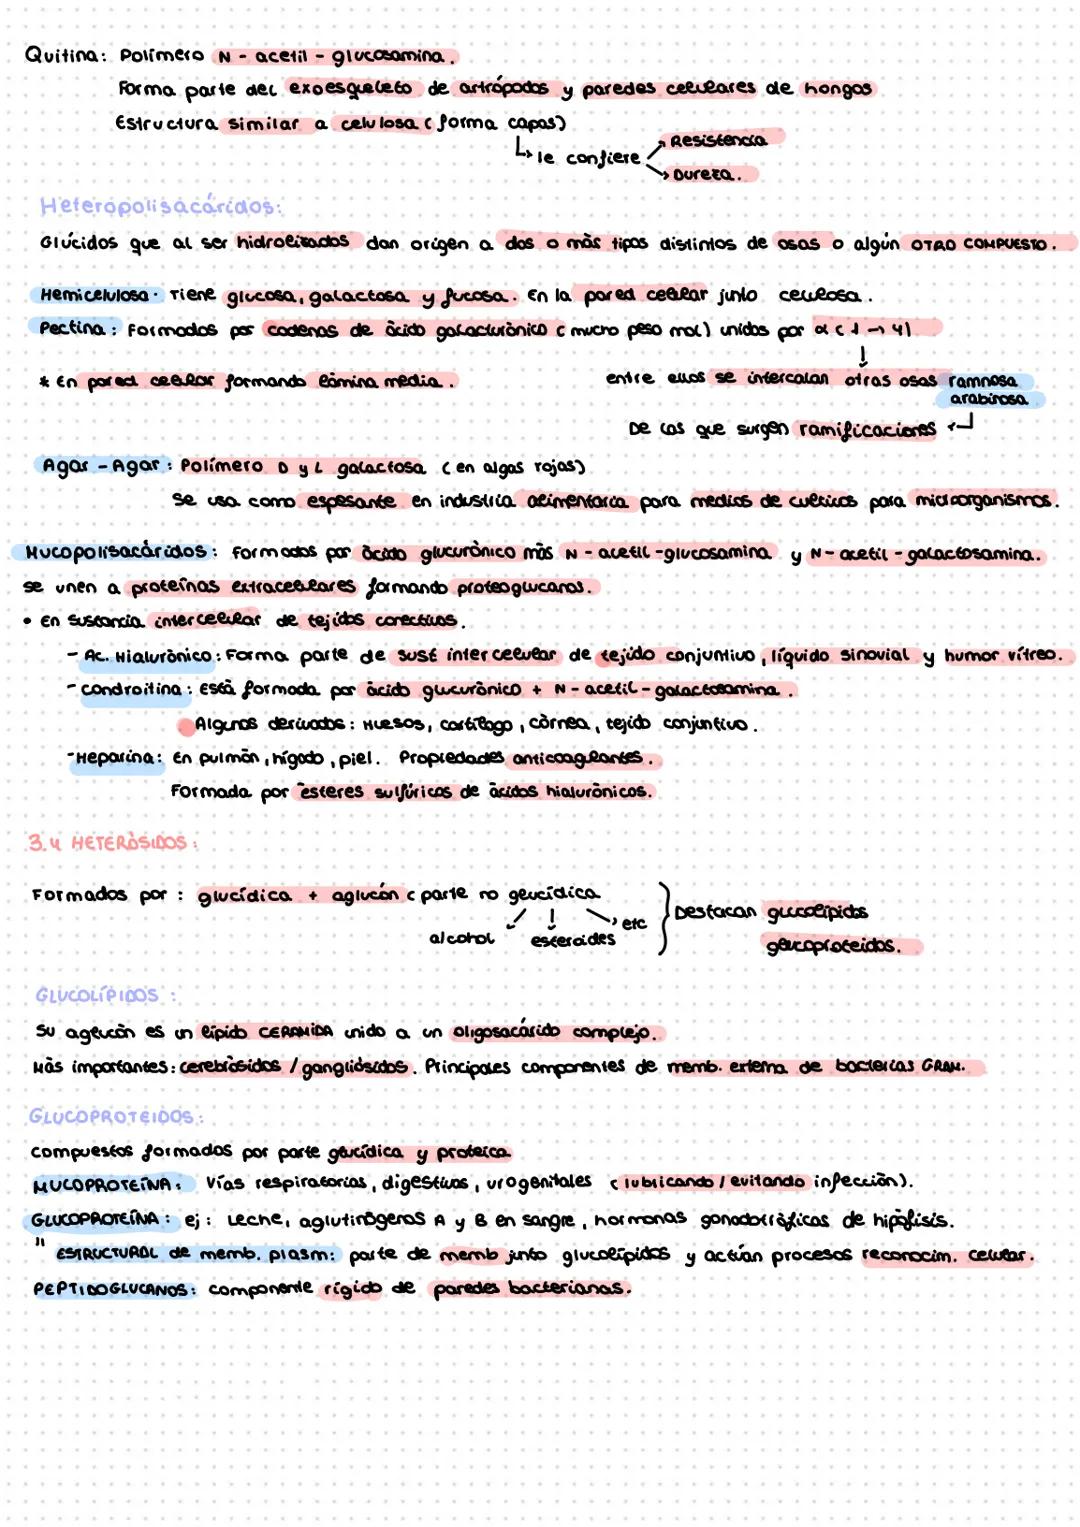 Quitina: Polímero N-acetil-glucosamina.
Forma parte del exoesqueleto de artrópodos y paredes celulares de hongos
Estructura similar a celulosa (forma capas)
↳ le confiere → Resistencia
→ Dureza.
Heteropolisacáridos:
Glúcidos que al ser hidrolizados dan origen a dos o más tipos distintos de osas o algún OTRO COMPUESTO.
Hemicelulosa. Tiene glucosa, galactosa y fucosa. En la pared celular junto celulosa.
Pectina: Formados por cadenas de ácido galacturónico (mucho peso mol) unidos por α(1→4)
↓
* En pared celular formando lámina media.
entre ellos se intercalan otras osas ramnosa
arabinosa
De las que surgen ramificaciones ←
Agar-Agar: Polímero D y L galactosa (en algas rojas)
Se usa como espesante en industria alimentaria para medios de cultivos para microorganismos.
Mucopolisacáridos: formados por ácido glucurónico más N-acetil-glucosamina y N-acetil-galactosamina.
se unen a proteínas extracelulares formando proteoglucanos.
• En sustancia intercelular de tejidos conectivos.
- Ac. Hialurónico: Forma parte de sust intercelular de tejido conjuntivo, líquido sinovial y humor vítreo.
- Condroitina: Está formada por ácido glucurónico + N-acetil-galactosamina.
Algunos derivados: Huesos, cartílago, córnea, tejido conjuntivo.
- Heparina: En pulmón, hígado, piel. Propiedades anticoagulantes.
Formada por ésteres sulfúricos de ácidos hialurónicos.
3.4 HETERÓSIDOS:
Formados por: glucídica + aglucón (parte no glucídica
alcohol esteroides etc
} Destacan glucolípidos
glucoproteidos.
GLUCOLÍPIDOS:
Su aglucón es un lípido CERAMIDA unido a un oligosacárido complejo.
Más importantes: cerebrósidos / gangliósidos. Principales componentes de memb. externa de bacterias GRAM.
GLUCOPROTEIDOS:
Compuestos formados por parte glucídica y proteica
MUCOPROTEÍNA: Vías respiratorias, digestivas, urogenitales (lubricando / evitando infección).
GLUCOPROTEÍNA: ej: Leche, aglutinógenos A y B en sangre, hormonas gonadotráficas de hipófisis.
" ESTRUCTURAL de memb. plasm: parte de memb junto glucolípidos y actúan procesos reconocim. celular.
PEPTIDOGLUCANOS: componente rígido de paredes bacterianas.